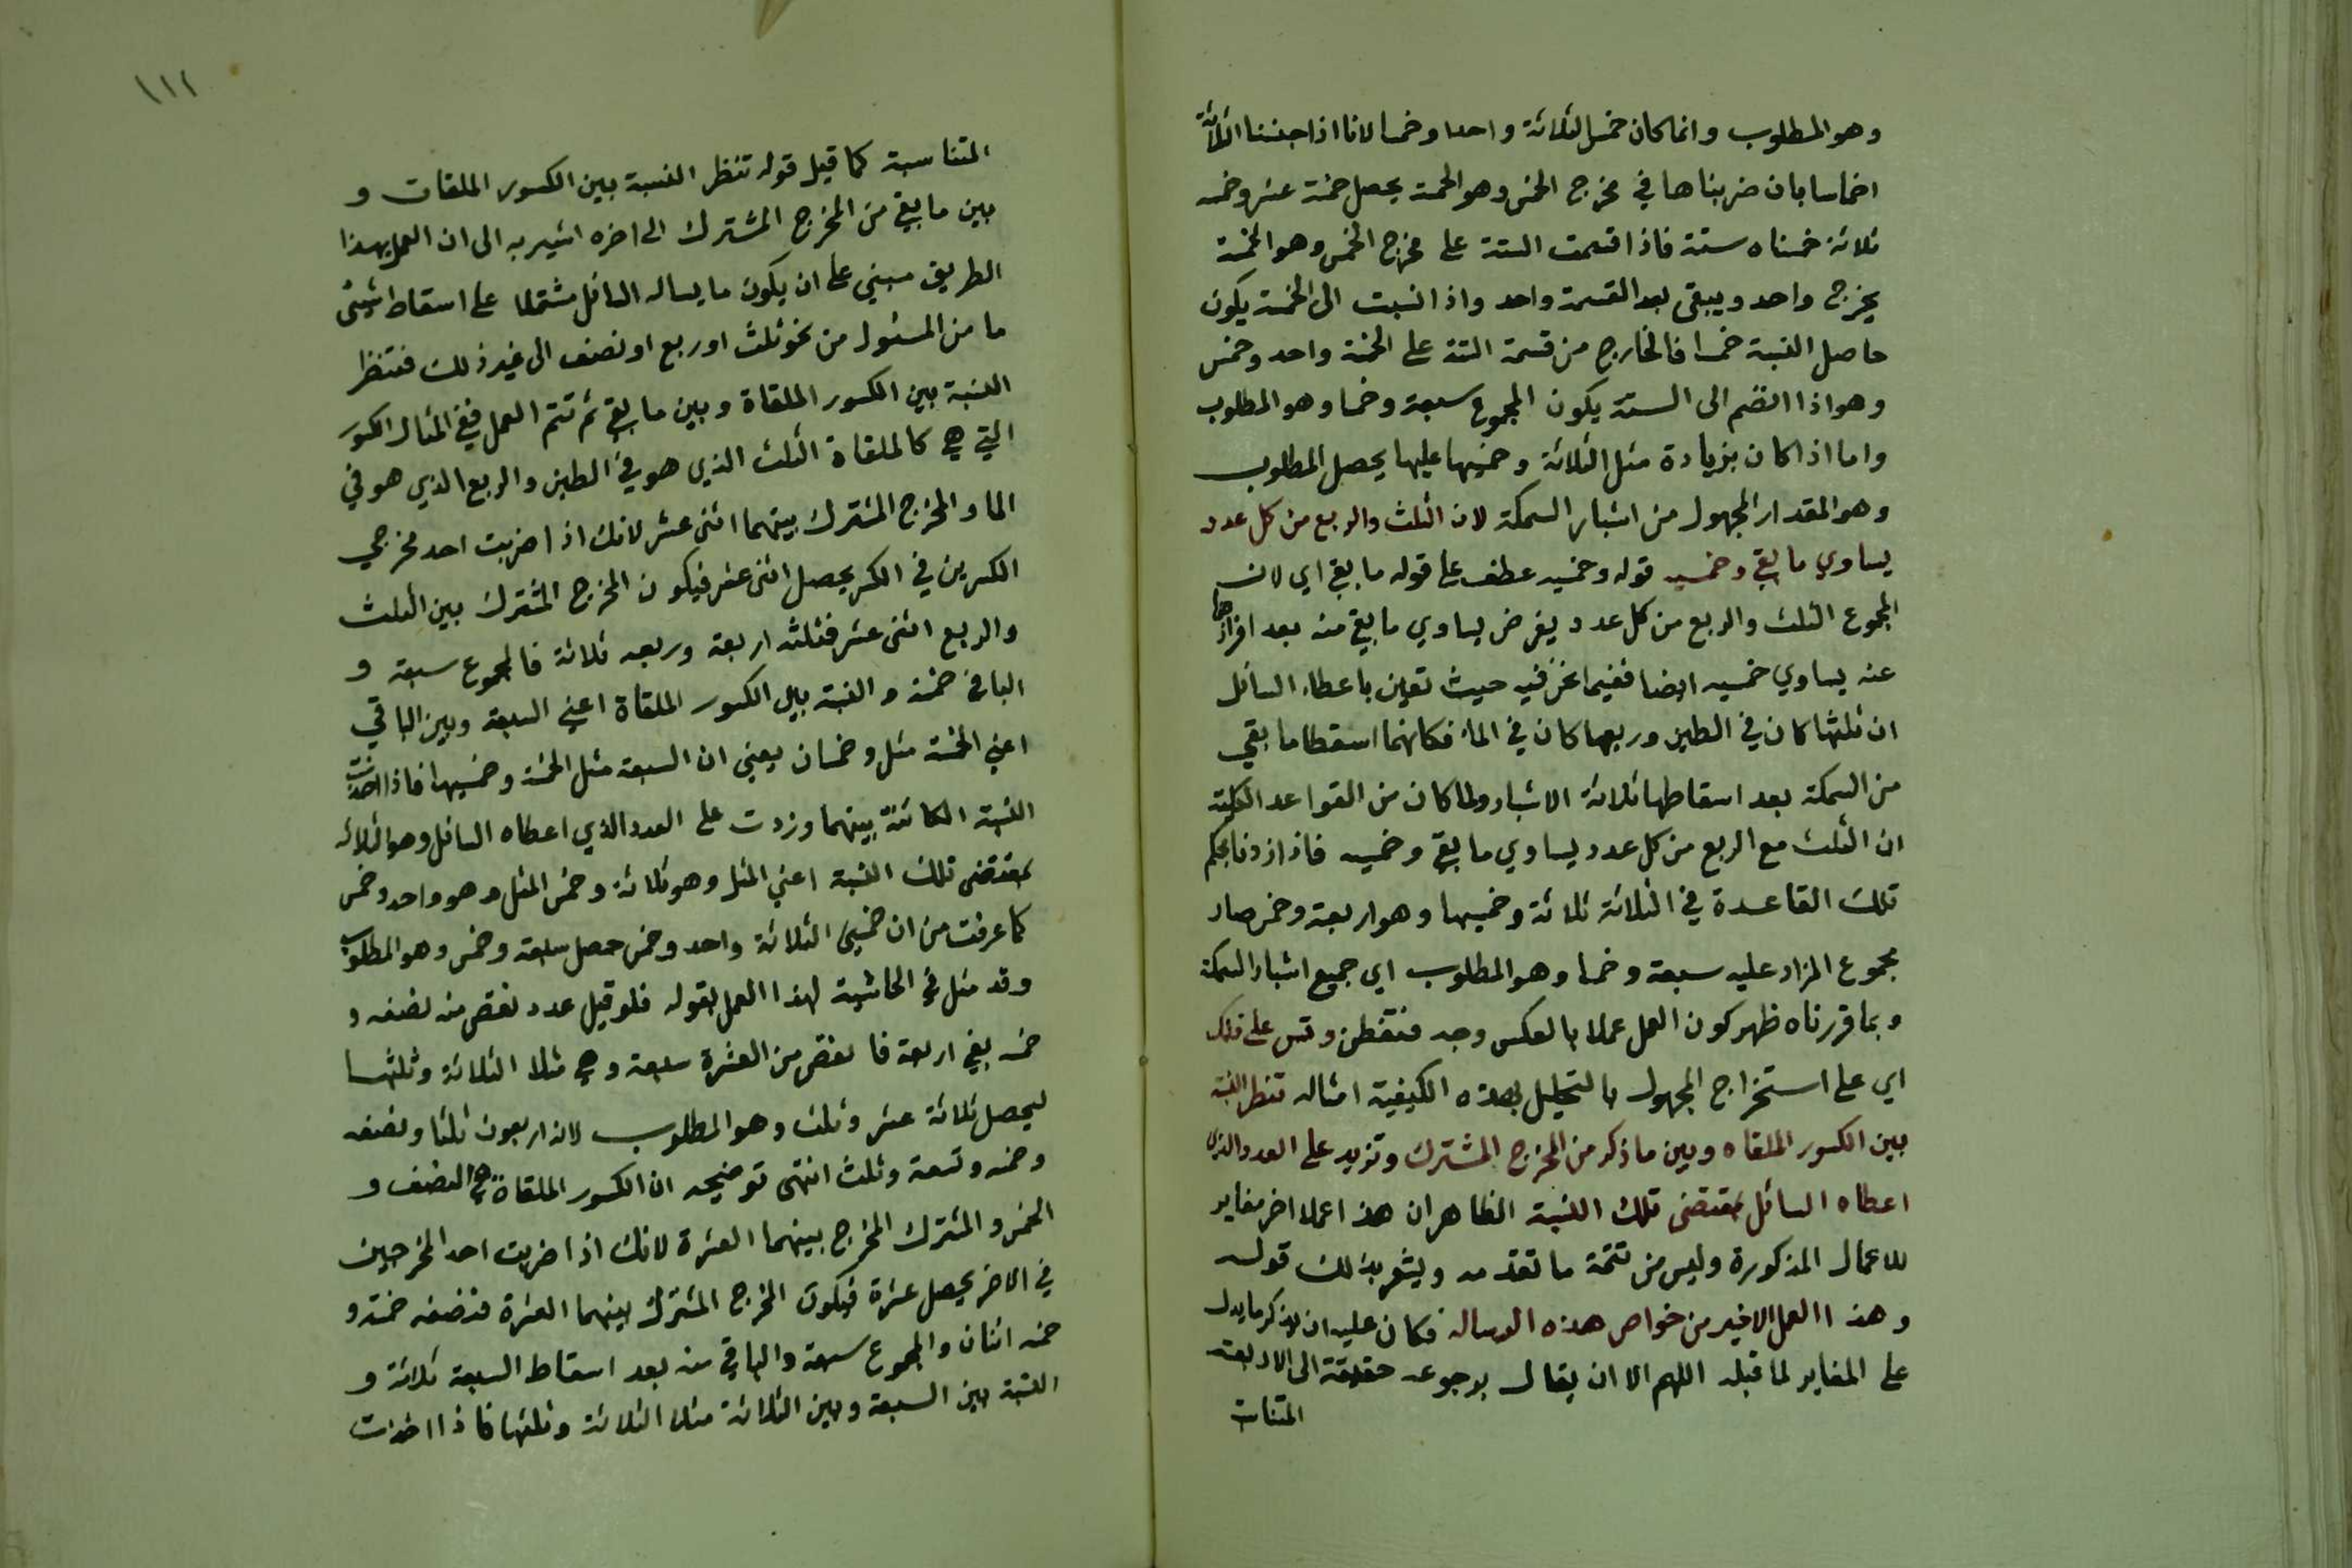 وهو المطلوب وانما كان خمس الثلاثة واحدا وخمسا لانا اذا جنسنا الثلاثة
اخماسا بان ضربناها في مخرج الخمس وهو الخمسة يحصل خمسة عشر وخمسه
ثلاثة خمساه ستة فاذا قسمت الستة على مخرج الخمس وهو الخمسة
يخرج واحد ويبقى بعد القسمة واحد واذا نسبت الى الخمسة يكون
حاصل النسبة خمسا فالخارج من قسمة الستة على الخمسة واحد وخمس
وهو اذا انضم الى الستة يكون المجموع سبعة وخمسا وهو المطلوب
واما اذا كان بزيادة مثل الثلاثة وخمسيها عليها يحصل المطلوب
وهو المقدار المجهول من اشبار السمكة لان الثلث والربع من كل عدد
يساوي ما بقي وخمسيه قوله وخمسيه عطف على قوله ما بقي اي لان
المجموع الثلث والربع من كل عدد يفرض يساوي ما بقي منه بعد افرازهما
عنه يساوي خمسيه ايضا ففيما نحن فيه حيث تعين باعطاء السائل
ان ثلثها كان في الطين وربعها كان في الماء فكانهما اسقطا ما بقي
من السمكة بعد اسقاطها ثلاثة الاشبار ولما كان من القواعد الكلية
ان الثلث مع الربع من كل عدد يساوي ما بقي وخمسيه فاذا زدنا بحكم
تلك القاعدة في الثلاثة ثلاثة وخمسيها وهو اربعة وخمس صار
مجموع المزاد عليه سبعة وخمسا وهو المطلوب اي جميع اشبار السمكة
وبما قررناه ظهر كون العمل عملا بالعكس وجه فتفطن وقس على ذلك
اي على استخراج المجهول بالتحليل بهذه الكيفية امثاله تنظر النسبة
بين الكسور الملقاه وبين ما ذكر من المخرج المشترك وتزيد على العدد الذي
اعطاه السائل بمقتضى تلك النسبة الظاهر ان هذا عملا اخر مغاير
للاعمال المذكورة وليس من تتمة ما تقدمه ويشعر بذلك قوله
وهذا العمل الاخير من خواص هذه الرساله فكان عليه ان يذكر ما يدل
على المغاير لما قبله اللهم الا ان يقال برجوعه حقيقة الى الاربعة
المتناسبة
١١٢
المتناسبة كما قيل قوله تنظر النسبة بين الكسور الملقات و
بين ما بقي من المخرج المشترك الى اخره اشير به الى ان العمل بهذا
الطريق مبني على ان يكون ما يساله السائل مشتملا على اسقاط شيئ
ما من المسئول من نحو ثلث او ربع او نصف الى غير ذلك فتنظر
النسبة بين الكسور الملقاة وبين ما بقي ثم تتم العمل ففي المثال الكسور
التي هي كالملقاة الثلث الذي هو في الطين والربع الذي هو في
الما والمخرج المشترك بينهما اثني عشر لانك اذا ضربت احد مخرجي
الكسرين في الكسر يحصل اثنى عشر فيكون المخرج المشترك بين الثلث
والربع اثنى عشر فثلثه اربعة وربعه ثلاثة فالمجموع سبعة و
الباقي خمسة والنسبة بين الكسور الملقاة اعني السبعة وبين الباقي
اعني الخمسة مثل وخمسان يعني ان السبعة مثل الخمسة وخمسيها فاذا اخذت
النسبة الكائنة بينهما وزدت على العدد الذي اعطاه السائل وهو الثلاثة
بمقتضى تلك النسبة اعني المثل وهو ثلاثة وخمس المثل وهو واحد وخمس
كما عرفت من ان خمسي الثلاثة واحد وخمس حصل سبعة وخمس وهو المطلوب
وقد مثل في الحاشية لهذا العمل بقوله فلو قيل عدد نقص منه نصفه و
خمسه بقي اربعة فا نقص من العشرة سبعة وهي مثلا الثلاثة وثلثها
ليحصل ثلاثة عشر وثلث وهو المطلوب لانه اربعون ثلثا ونصفه
وخمسه وتسعة وثلث انتهى توضيحه ان الكسور الملقاة هي النصف و
الخمس والمشترك المخرج بينهما العشرة لانك اذا ضربت احد المخرجين
في الاخر يحصل عشرة فيكون المخرج المشترك بينهما العشرة فنصفه خمسة و
خمسه اثنان والمجموع سبعة والباقي منه بعد اسقاط السبعة ثلاثة و
النسبة بين السبعة وبين الثلاثة مثلا الثلاثة وثلثها فاذا اخذت